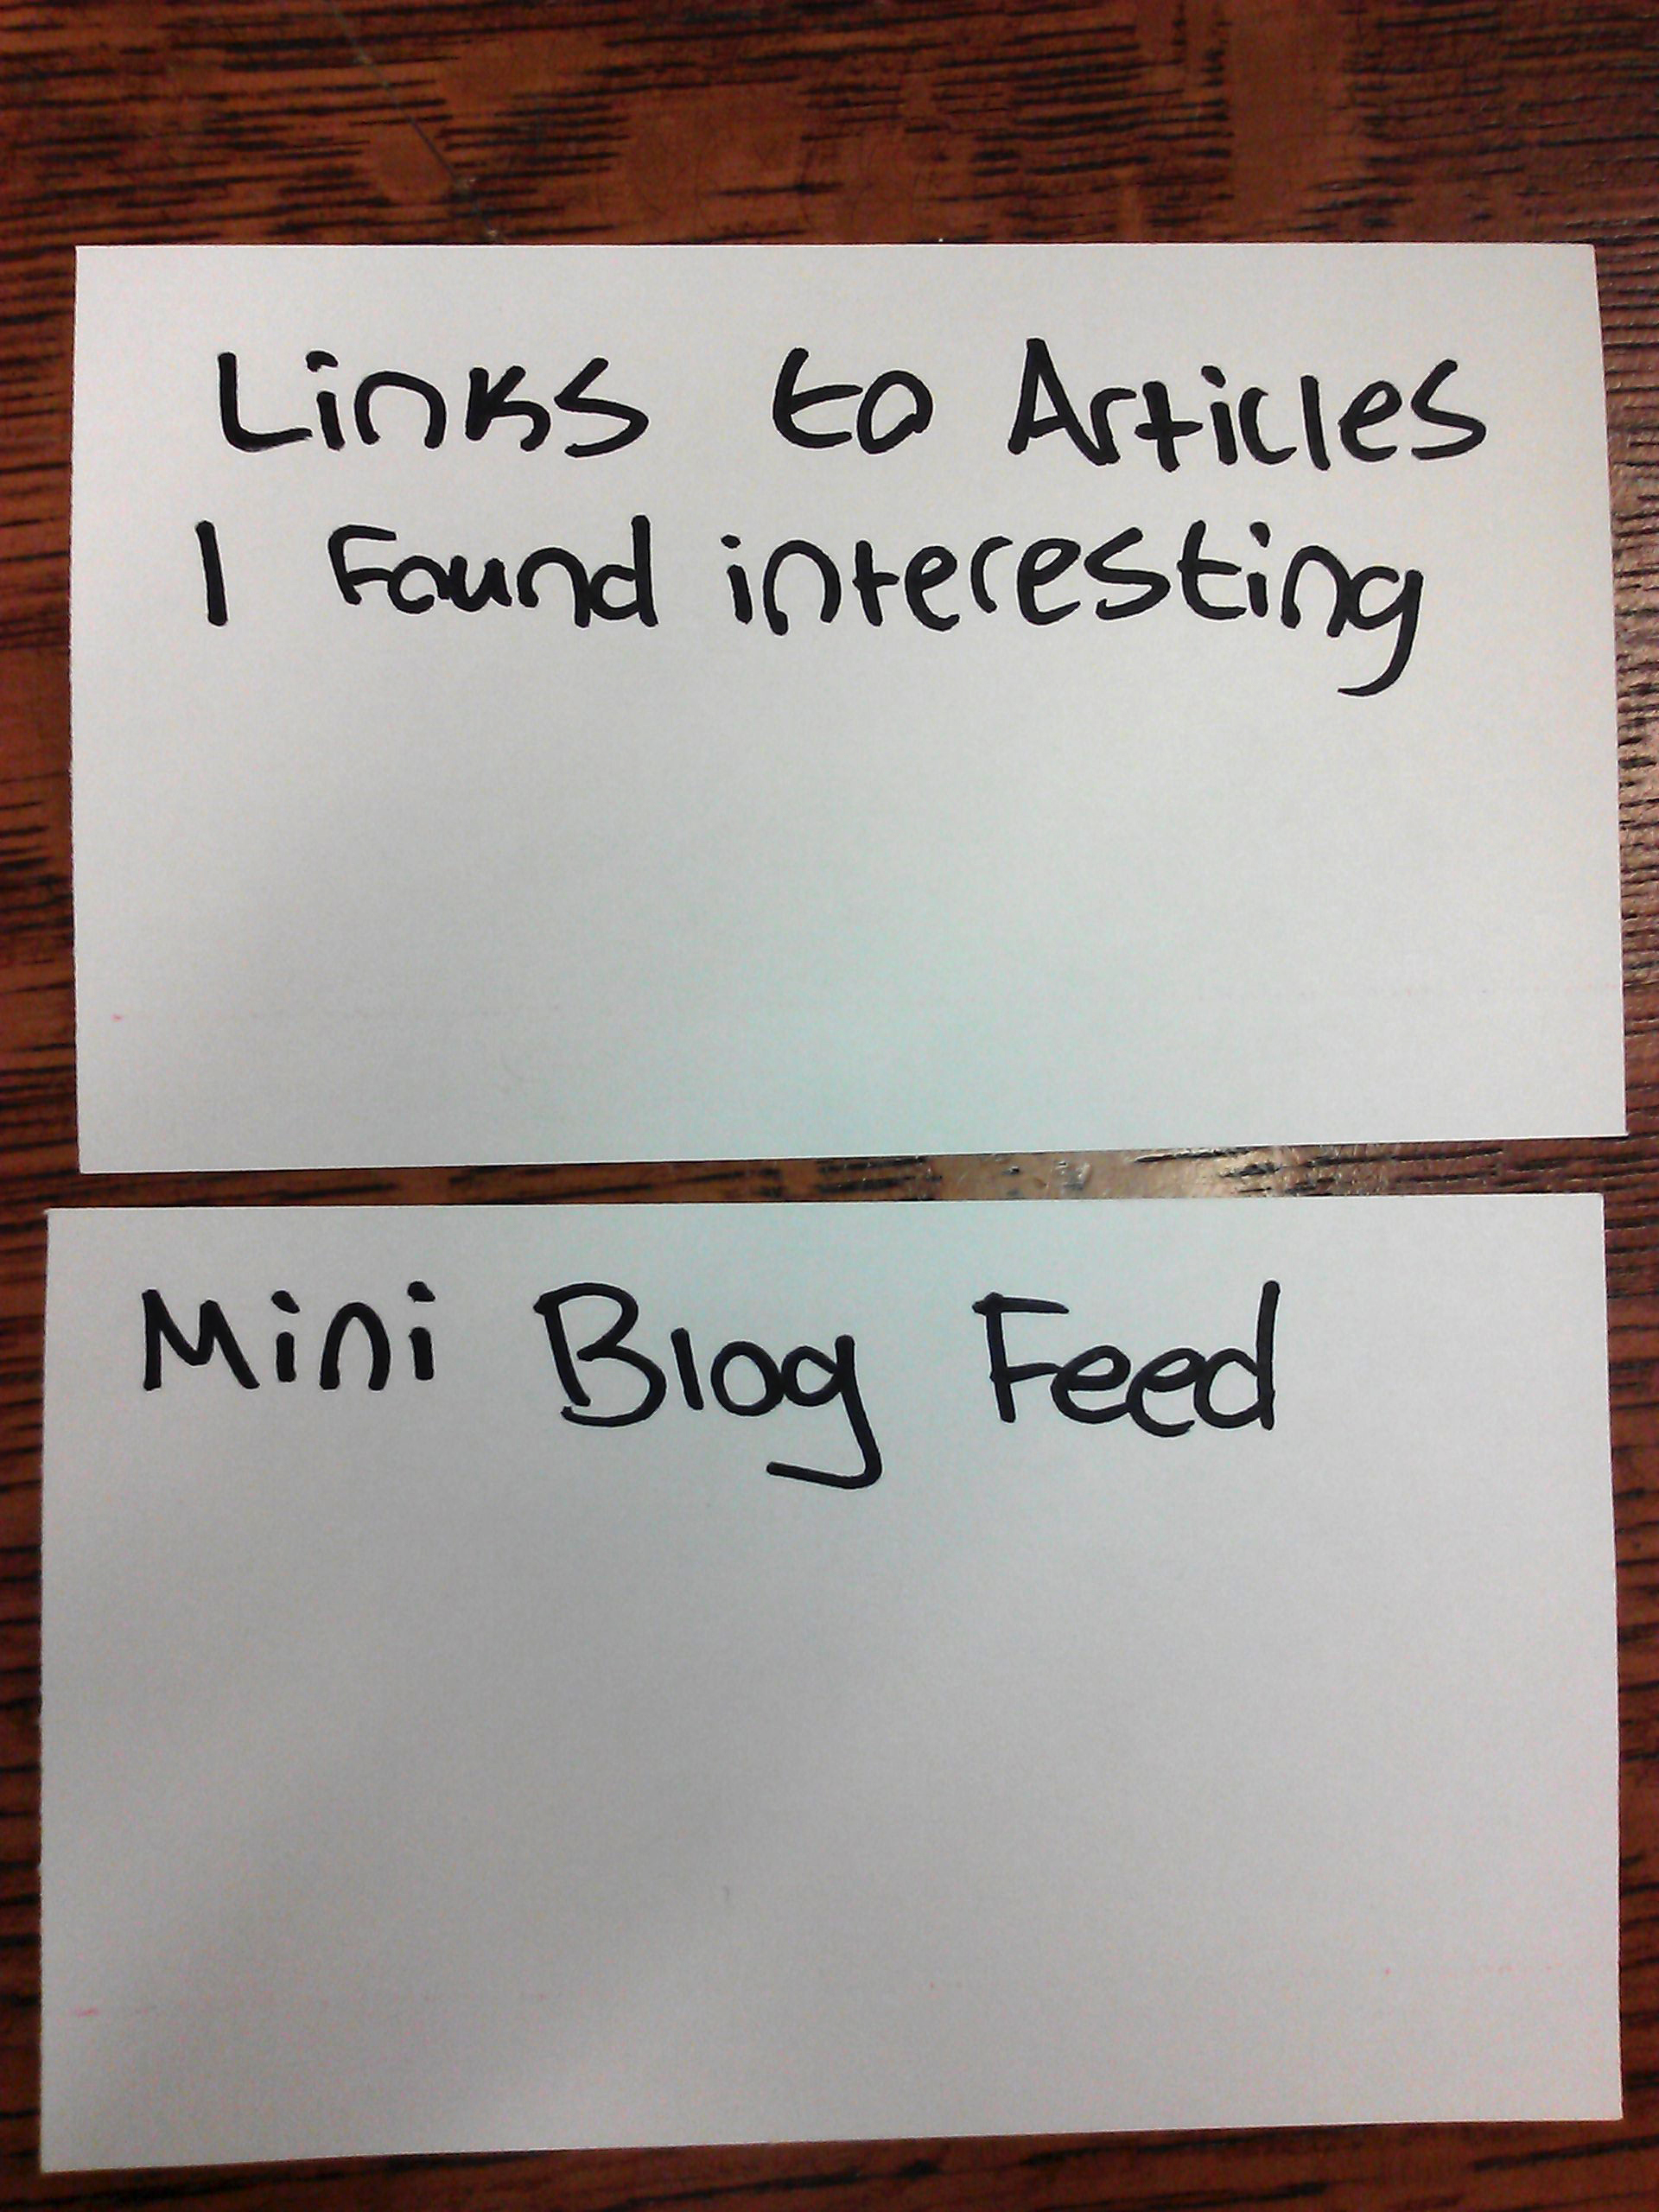 Links to Articles
I Found interesting
Mini Blog Feed